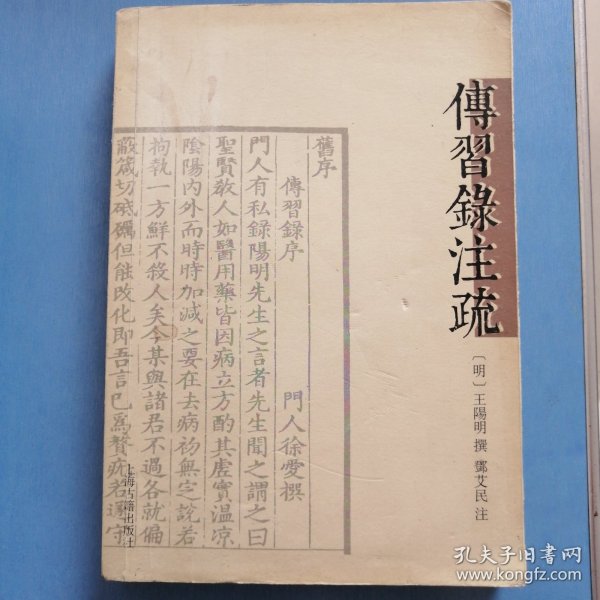 傳習錄注疏
〔明〕王陽明 撰 鄧艾民 注
舊序
傳習錄序
門人徐愛撰
門人有私錄陽明先生之言者先生聞之謂之曰
聖賢教人如醫用藥皆因病立方酌其虛實溫凉
陰陽内外而時時加減之要在去病初無定說若
拘執一方鮮不殺人矣今某與諸君不過各就偏
蔽箴切砥礪但能改化即吾言已爲贅疣若遂守
上海古籍出版社
孔夫子旧书网
www.kongfz.com